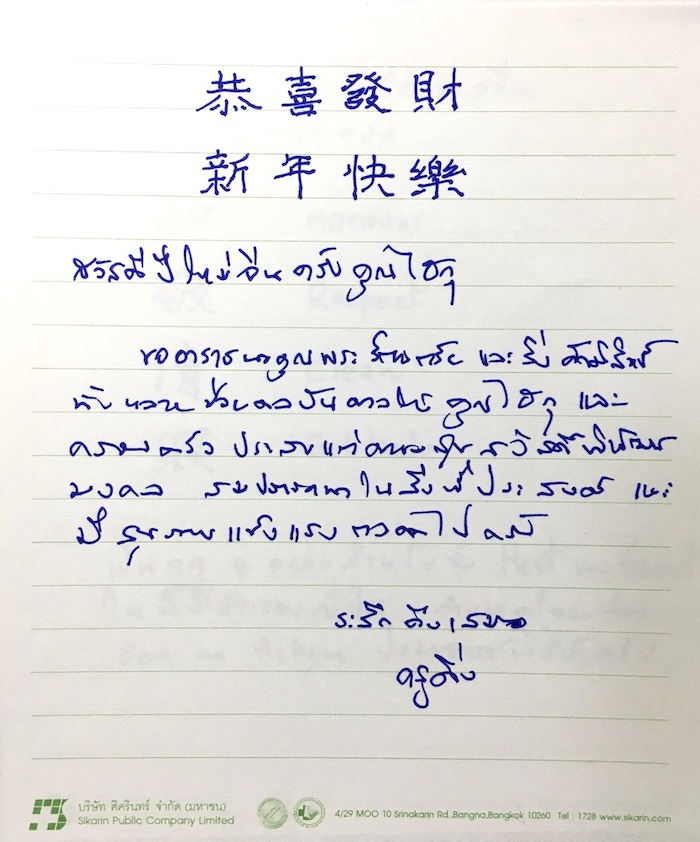 恭喜發財
新年快樂
สวัสดีปีใหม่จีนครับคุณไฮกุ
ขออาราธนาคุณพระศรีรัตนตรัย และสิ่งศักดิ์สิทธิ์
ทั้งหลายช่วยดลบันดาลให้คุณไฮกุ และ
ครอบครัว ประสบแต่ความสุข สวัสดิ์พิพัฒน
มงคล สมปรารถนาในสิ่งที่ประสงค์ และ
มีสุขภาพแข็งแรงตลอดไปครับ
ระลึกถึงเสมอ
ครูติ่ง
บริษัท ศิครินทร์ จำกัด (มหาชน)
Sikarin Public Company Limited
4/29 MOO 10 Srinakarin Rd.,Bangna,Bangkok 10260 Tel : 1728 www.sikarin.com